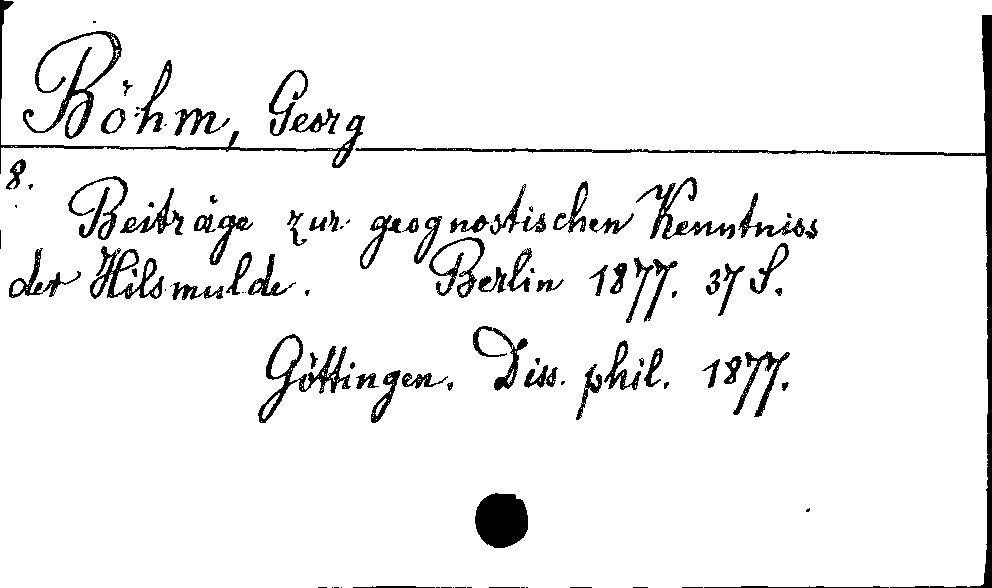 Böhm, Georg
8.
Beiträge zur geognostischen Kenntniss
der Hilsmulde. Berlin 1877. 37 S.
Göttingen. Diss. phil. 1877.